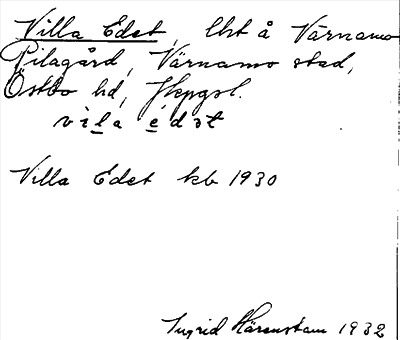 Villa Edet, lht å Värnamo
Pilagård, Värnamo stad,
Östbo hd, Jkpgsl.
vila edət
Villa Edet kb 1930
Ingrid Härenstam 1932